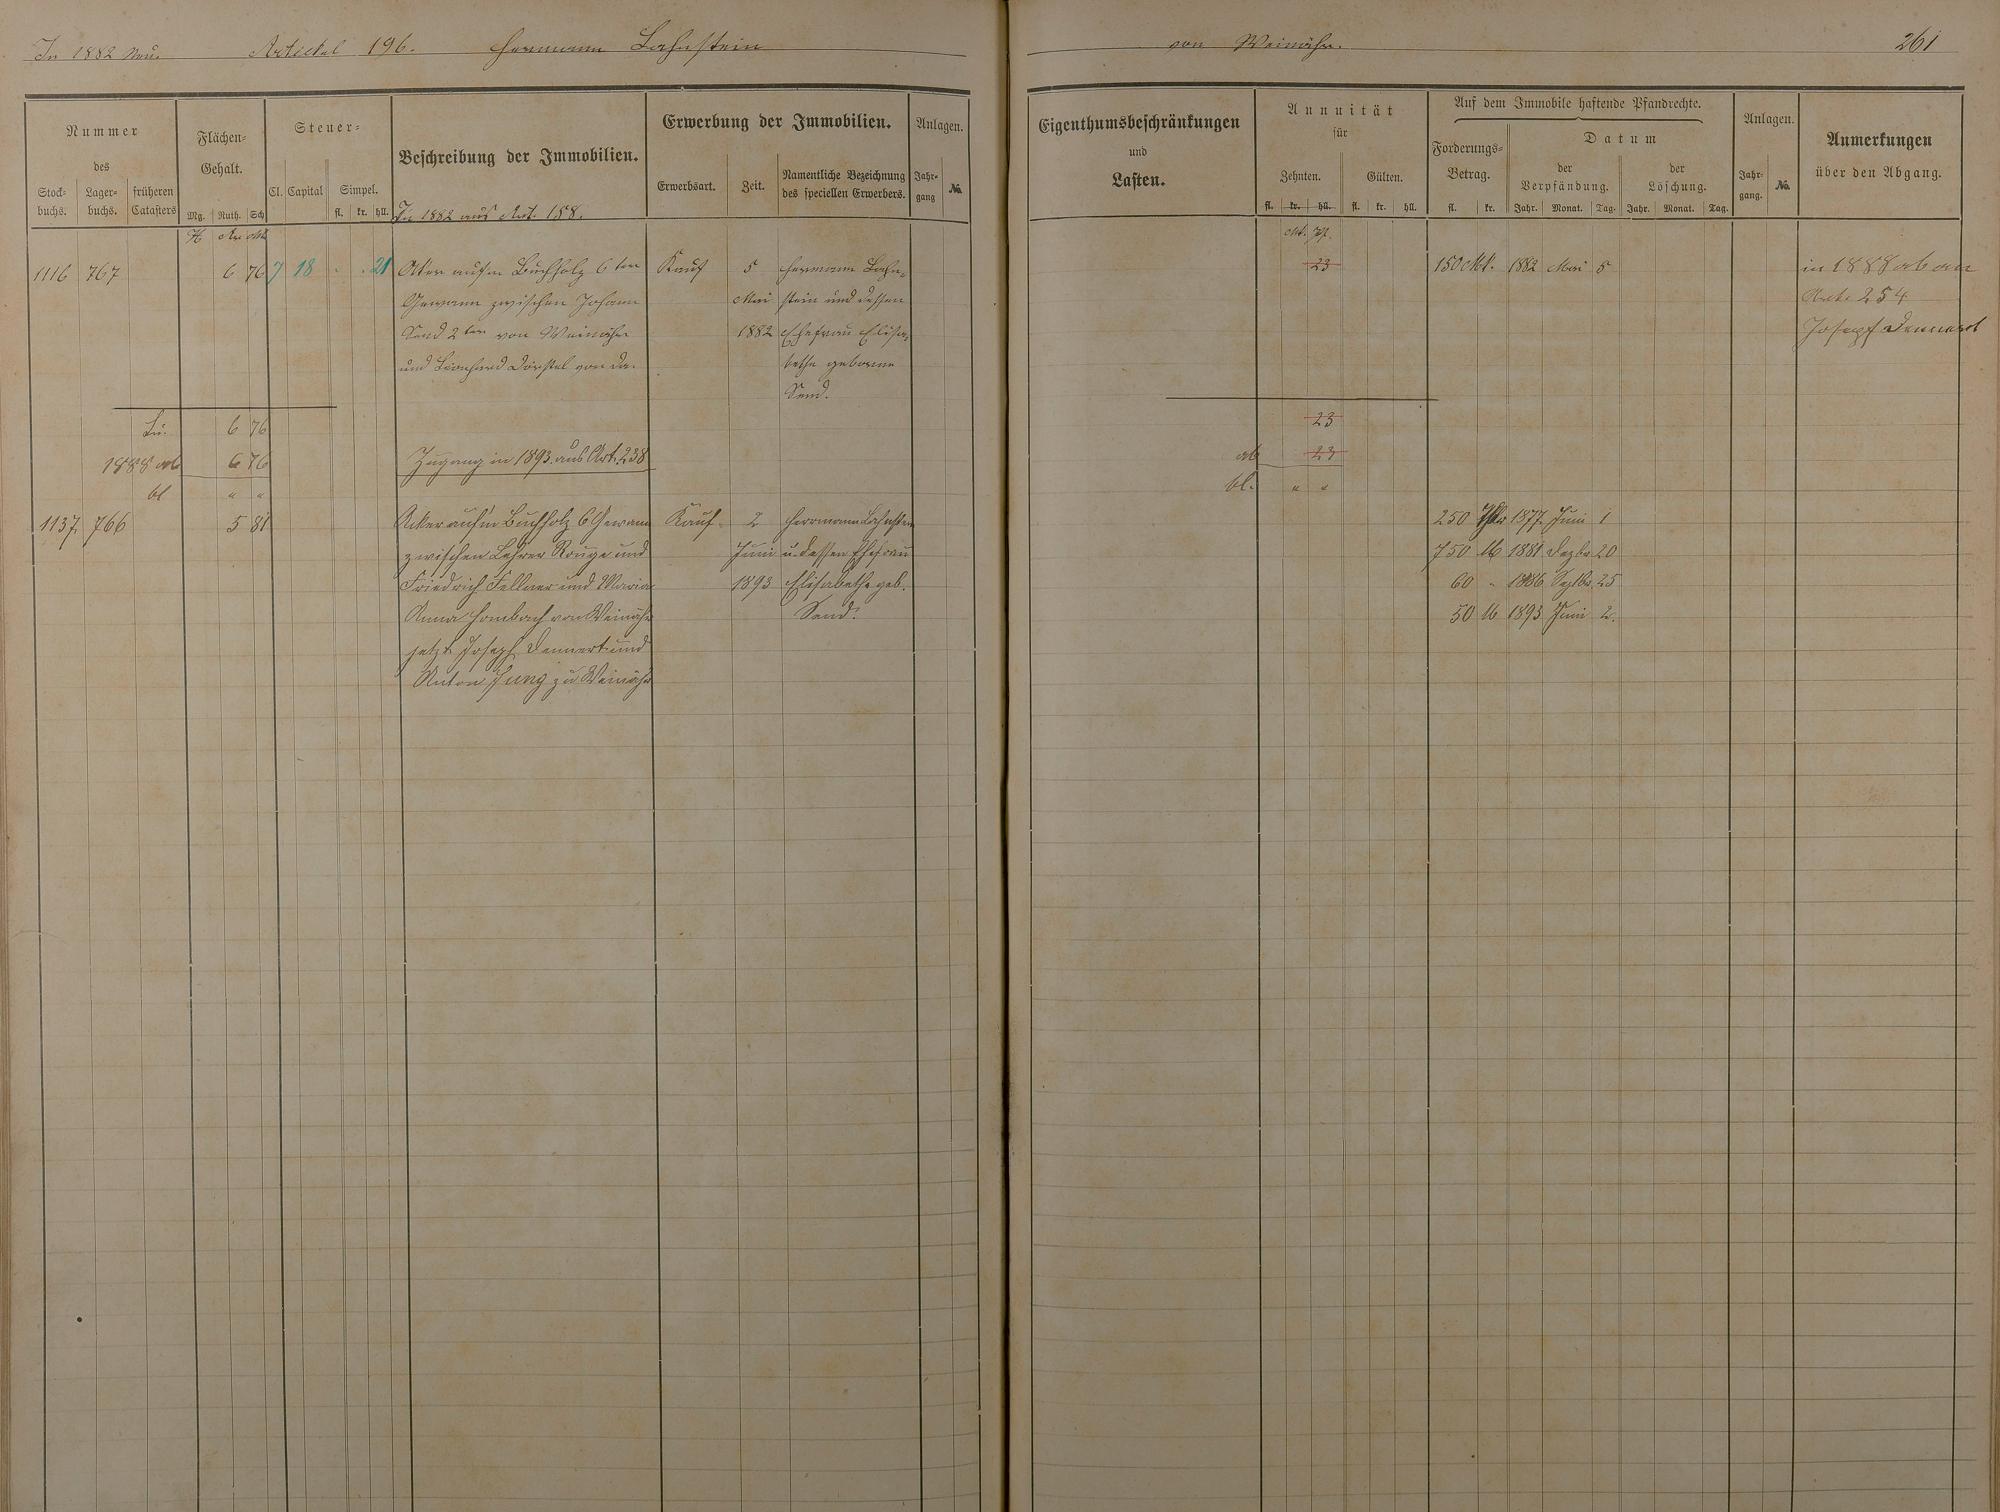 In 1882 Neu. Artickel 196. Hermann Lahnstein von Weinähr. 261
Nummer
des
Stock-
buchs.
Lager-
buchs.
früheren
Catasters
Flächen-
Gehalt.
Mg. Ruth. Sch
Steuer-
Cl. Capital Simpel.
fl. kr. hll.
Beschreibung der Immobilien.
In 1882 aus Art. 158.
Erwerbung der Immobilien.
Erwerbsart. Zeit.
Namentliche Bezeichnung
des speciellen Erwerbers.
Anlagen.
Jahr-
gang
No.
Eigenthumsbeschränkungen
und
Lasten.
Annuität
für
Zehnten. Gülten.
fl. kr. hll. fl. kr. hll.
Auf dem Immobile haftende Pfandrechte.
Forderungs-
Betrag.
fl. kr.
Datum
der
Verpfändung.
der
Löschung.
Jahr. Monat. Tag. Jahr. Monat. Tag.
Anlagen.
Jahr-
gang.
No.
Anmerkungen
über den Abgang.
H Ar Mt
Mk. Pf.
1116 767 6 76 7 18 . . 21 Acker aufm Buchholz 6ten Kauf 5 Hermann Lahn- 23 150 Mk. 1882 Mai 5 in 1888 ab an
Gewann zwischen Johann Mai stein und dessen Art. 254
Send 2ter von Weinähr 1882 Ehefrau Elisa- Joseph Dennert
und Lionhard Dörstel von da. bethe geborne
Send.
Su. 6 76 23
1888 ab 6 76 Zugang in 1893 aus Art. 238 ab 23
bl " " bl. " "
1137. 766 5 81 Acker auf'm Buchholz 6 Gewann Kauf. 2 Herrmann Lahnstein 250 Thlr 1877 Juni 1
zwischen Lehrer Rouge und Juni u. dessen Ehefrau 750 M 1881 Dezbr 20
Friedrich Fellner und Maria 1893 Elisabethe geb. 60 " 1886 Septbr. 25
Anna Hombach von Weinähr Send. 50 M 1893 Juni 2.
jetzt Joseph Dennert und
Anton Jung zu Weinähr